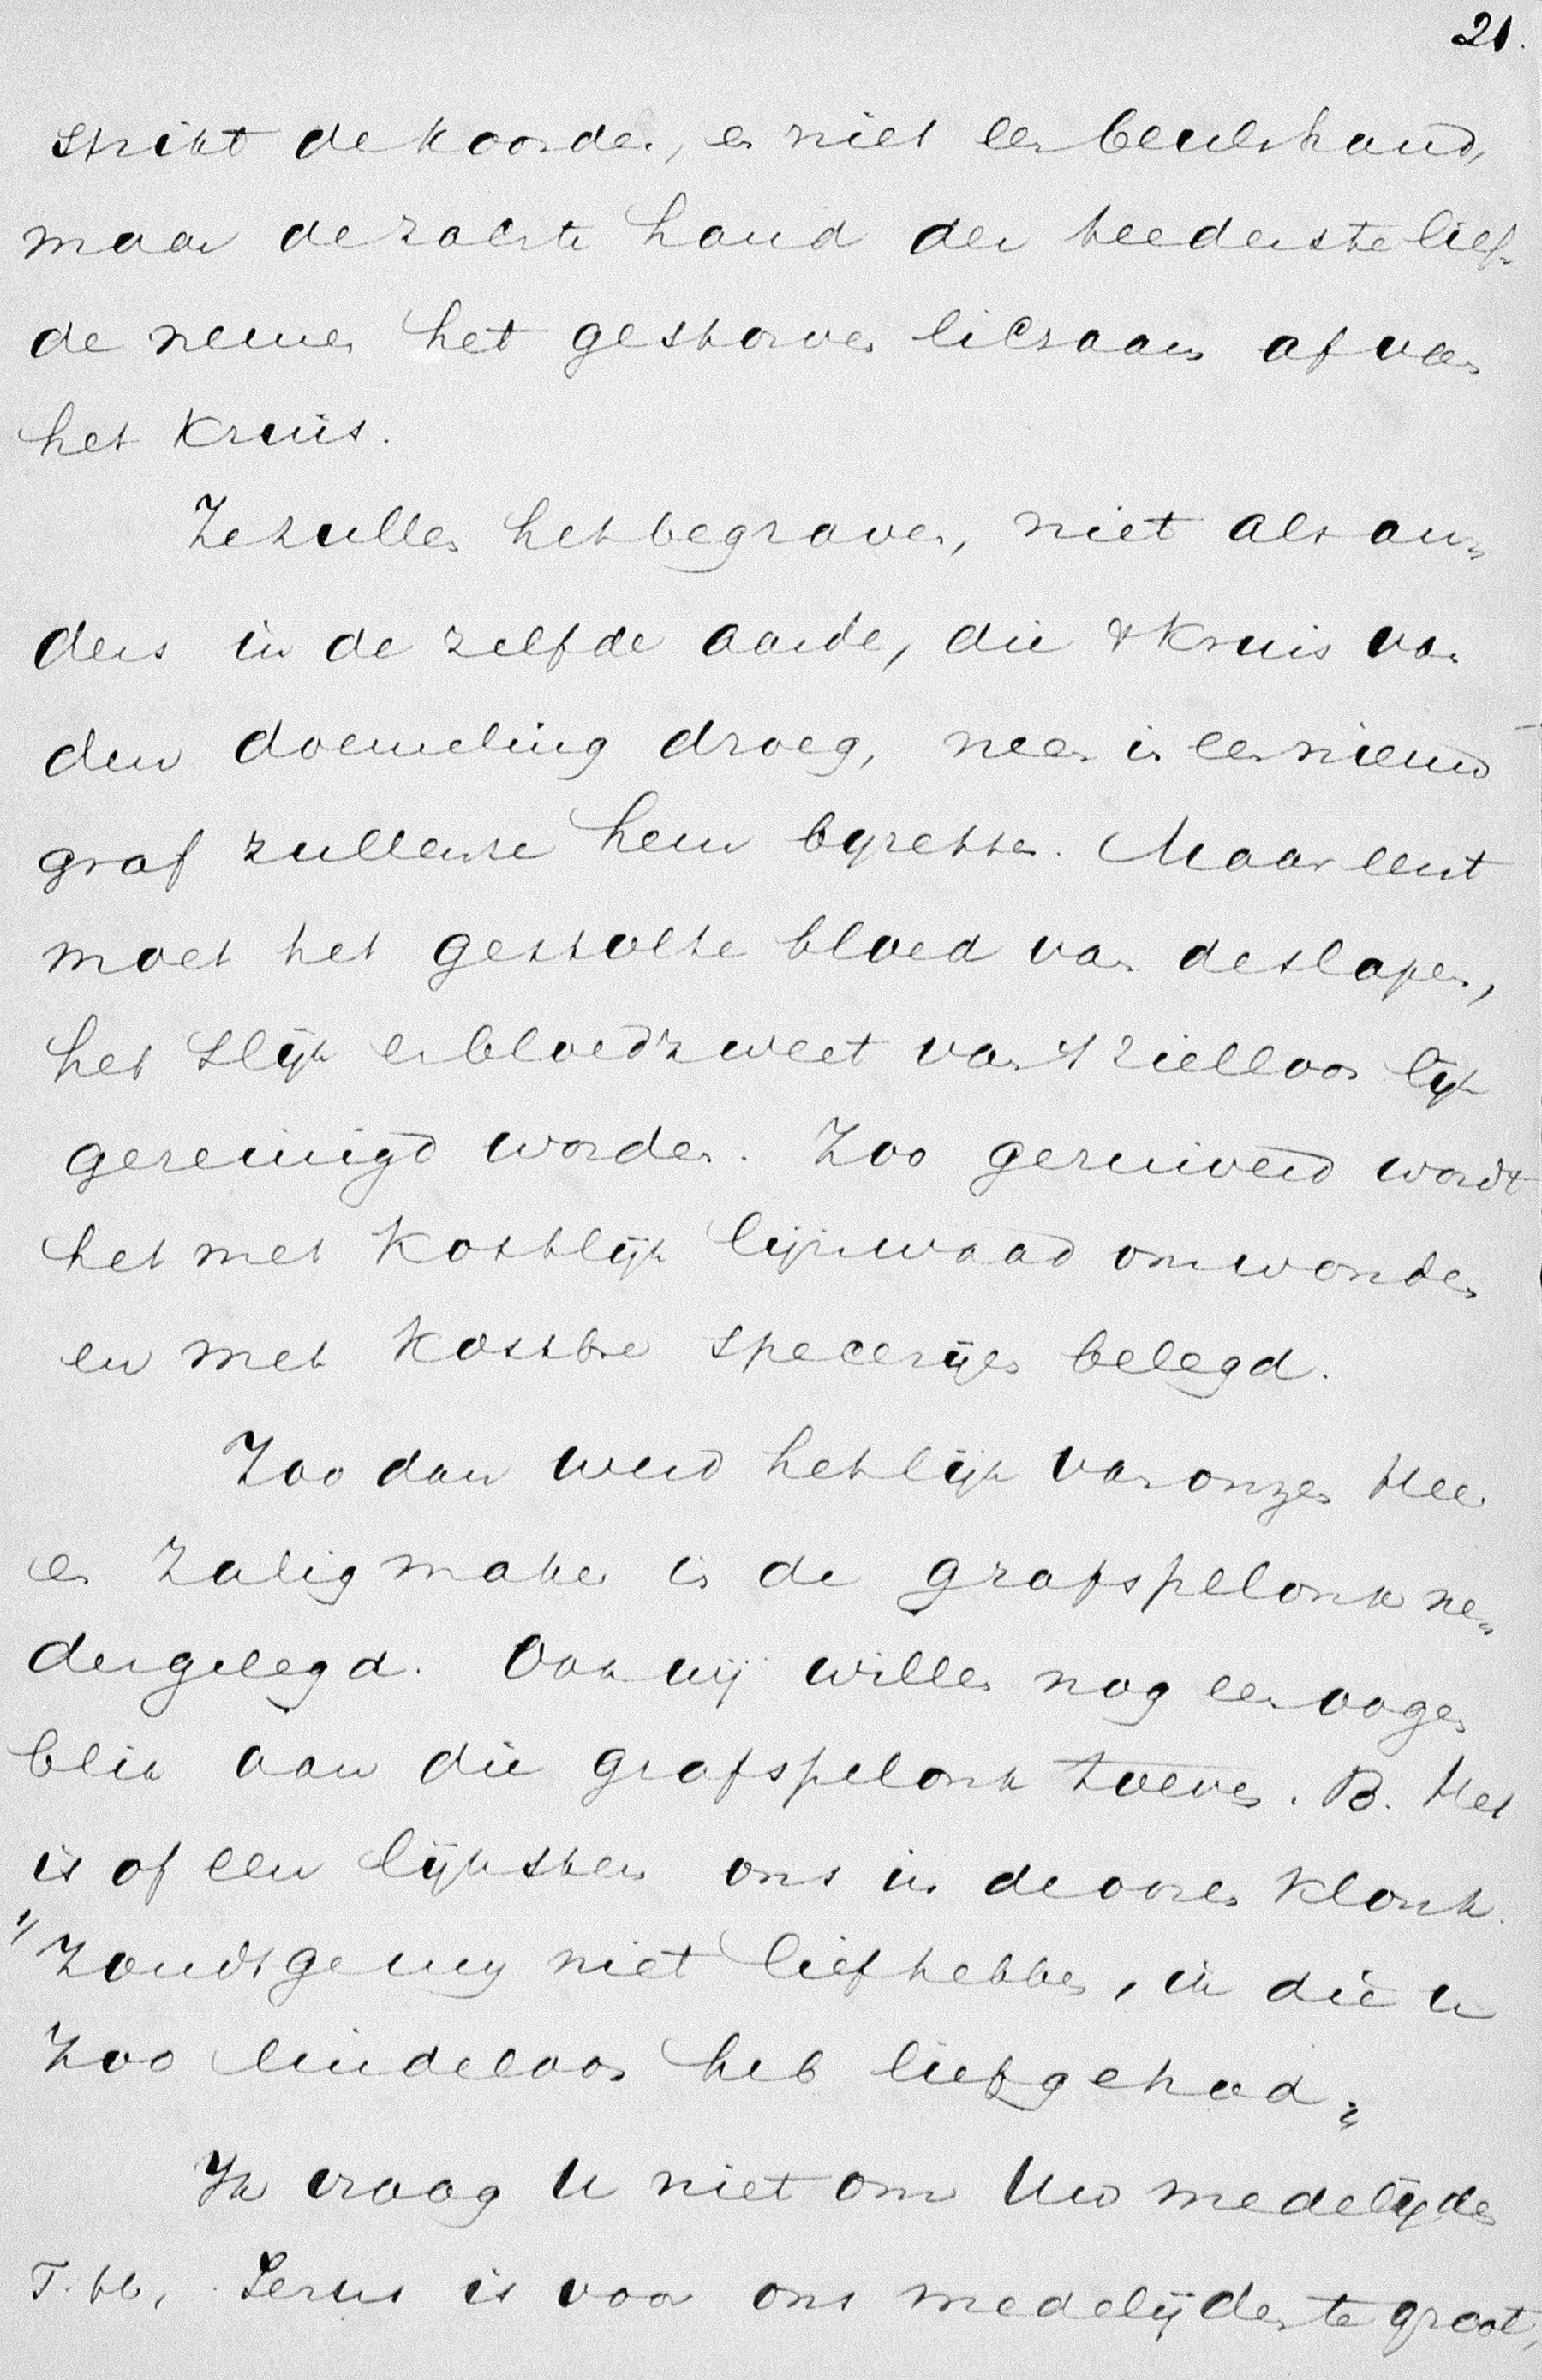 21.
strikt de koorden, en niet een beulshand,
maar de zachte hand der teederste lief-
de nemen het gestorven lichaam af van
het kruis.
Ze zullen het begraven, niet als an-
ders in de zelfde aarde, die 't kruis van
den doemeling droeg, neen in een nieuw
graf zullen ze hem bijzetten. Maar eerst
moet het gestolte bloed van de slapen,
het slijk en bloedzweet van 't zielloos lijk
gereinigd worden. Zoo gezuiverd wordt
het met kostlijk lijnwaad omwonden
en met kostbre specerijen belegd.
Zoo dan werd het lijk van onzen Heer
en Zaligmaker in de grafspelonk ne-
dergelegd. Ook wij willen nog een oogen
blik aan die grafspelonk toeven. B. Het
is of een lijkstem ons in de ooren klonk.
"Zoudt ge mij niet liefhebben, ik die u
zoo eindeloos heb liefgehad"
Ik vraag U niet om Uw medelijden
T. H., Jezus is voor ons medelijden te groot,